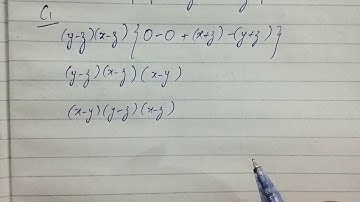 C₁
(y-z)(x-z) { 0-0 + (x+z) - (y+z) }
(y-z)(x-z) (x-y)
(x-y)(y-z)(x-z)